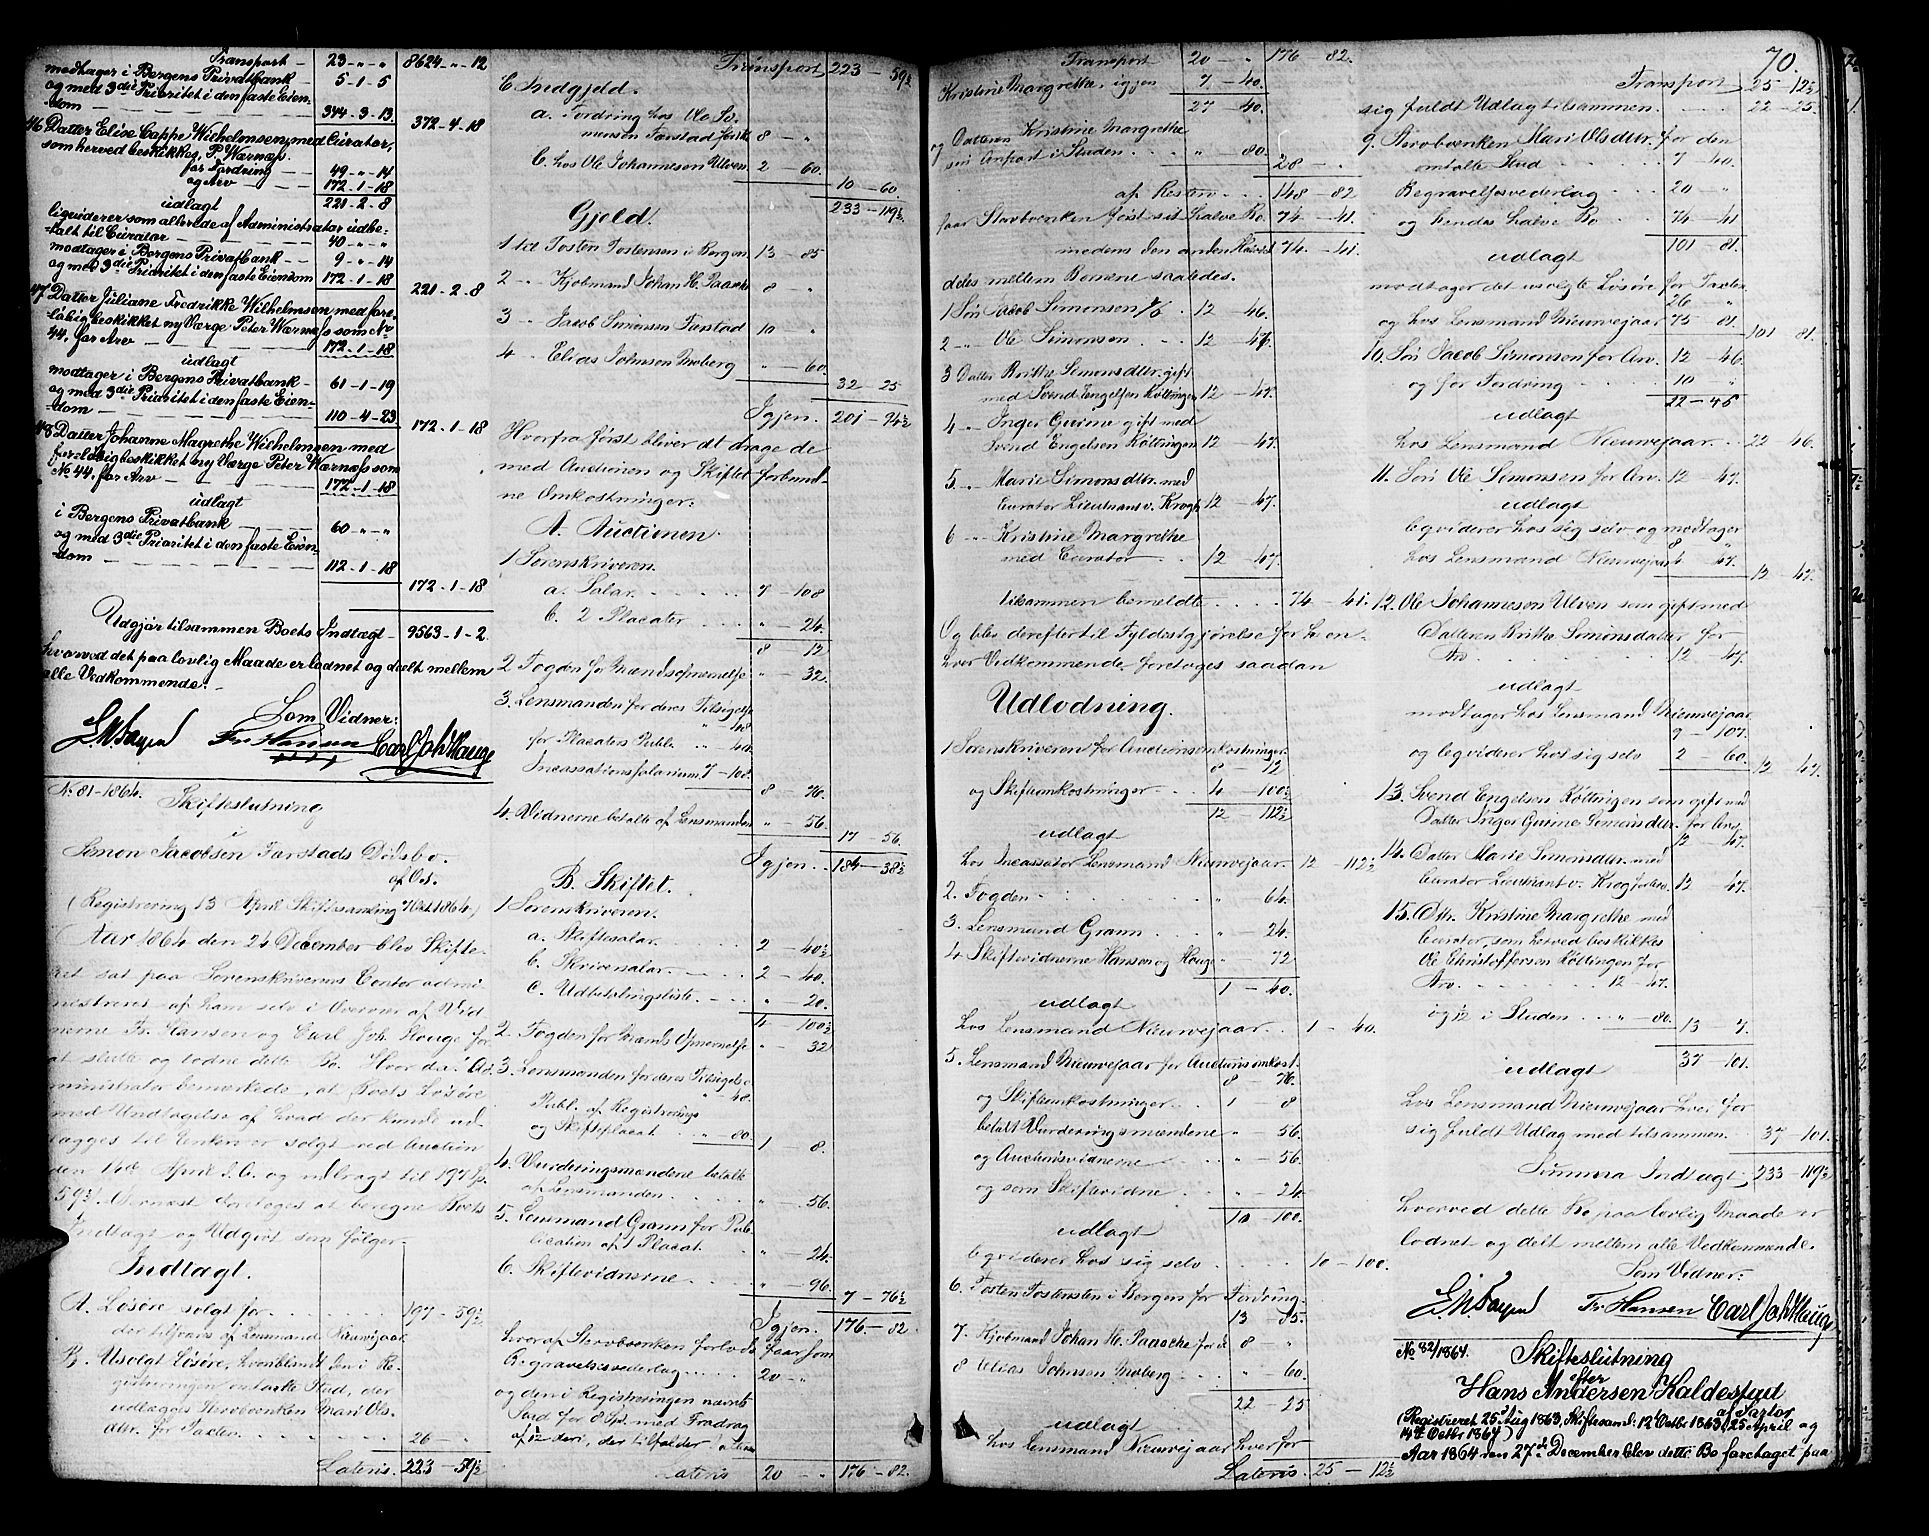 Transport 23 - „ - „ 8624 - „ - 12
modtager i Bergens Privatbank 5 - 1 - 5
og med 3die Prioritet i den faste Eien-
dom 344 - 3 - 13
372 - 4 - 18
46 Datter Elise Cappe Wilhelmsen med Curator,
som herved beskikkes, P. Warnæss.
for Fordring 49 - „ - 14
og Arv 172 - 1 - 18
udlagt 221 - 2 - 8
liqviderer som allerede af Administrator udbe-
talt til Curator 40 - „ - „
modtager i Bergens Privatbank 9 - „ - 14
og med 3die Prioritet i den faste Eiendom 172 - 1 - 18
221 - 2 - 8
47 Datter Juliane Fredrikke Wilhelmsen med fore-
løbig beskikket ny Værge Peter Warnæss som No
44. for Arv 172 - 1 - 18
udlagt
modtager i Bergens Privatbank 61 - 1 - 19
og med 3die Prioritet i den faste Eien-
dom 110 - 4 - 23
172 - 1 - 18
48 Datter Johanne Magrethe Wilhelmsen med
foreløbig beskikket ny Værge Peter Warnæss som
No 44. for Arv 172 - 1 - 18
udlagt
i Bergens Privatbank 60 - „ - „
og med 3die Prioritet i den faste Eien-
dom 112 - 1 - 18
172 - 1 - 18
Udgjør tilsammen Boets Indtægt 9563 - 1 - 2
hvorved det paa lovlig Maade er lodnet og deelt mellem
alle Vedkommende.
Som Vidner:
Fr. Hansen Carl Joh Hauge
No 81 - 1864. Skifteslutning
i
Simon Jacobsen Farstads Dødsbo.
af Os.
(Registrering 13 April Skiftesamling 7 Oct 1864)
Aar 1864 den 24 December blev Skifte-
ret sat paa Sorenskriverens Contor admi-
nistreret af ham selv i Overvær af Vid-
nerne Fr. Hansen og Carl Joh. Hauge for
at slutte og lodne dette Bo. Hvorda: Ad-
ministrator bemærkede, at Boets Løsøre
med Undtagelse af hvad der kunde ud-
lægges til Enken er solgt ved Auction
den 14de April d. A. og udbragt til 197 Sp.
59½. Dernæst foretoges at beregne Boets
Indtægt og Udgivt som følger.
Indtægt.
A. Løsøre solgt for 197 - 59½
der tilsvares af Lensmand Nieuwejaar
B. Usolgt Løsøre, hvoriblandt den i Re-
gistreringen omtalte Stud, der
udlægges Stervboenken Mari Ols-
dtr. for Taxten 26 „
Lateris 223 - 59½
Transport 223 - 59½
C. Indgjeld.
a. Fordring hos Ole Si-
monsen Farstad 8 - „
b. hos Ole Johannesen Ulven 2 - 60.
10 - 60
233 - 119½
Gjeld.
1 til Tosten Tostensen i Bergen 13 - 85
2 - Kjøbmand Johan H. Paasche 8 - „
3 - Jacob Simonsen Farstad 10 - „
4 - Elias Johnsen Moberg „ - 60.
32 - 25
Igjen. 201 - 94½
Hvorfra først bliver at drage de
med Auctionen og Skiftet forbund-
ne Omkostninger:
A. Auctionen.
1 Sorenskriveren.
a. Salar 7 - 108
b. 2 Placater „ - 24.
8 12
2 Fogden for Mændsopnævnelse „ - 32.
3. Lensmanden for deres Tilsigelse
„ 48
for Placaters Publ. „ 40.
Incassationssalarium 7 - 108.
8 - 76.
4. Vidnerne betalte af Lensmanden „ - 56.
17 - 56.
Igjen. 184 - 38½
B. Skiftet.
1 Sorenskriveren.
a. Skiftesalar 2 - 40½
b. Skrivesalar 2 - 40.
c. Udbetalingsliste „ - 20.
4 - 100½
2. Fogden for Mænds Opnævnelse „ - 32
3. Lensmanden for deres Tilsigelse
„ 48.
Publ. af Registrerings
og Skifteplacat „ 80.
1 - 8.
4. Vurderingsmændene betalte
af Lensmanden „ - 56.
5. Lensmand Grann for Pub-
lication af 1 Placat „ - 24.
6. Skiftevidnerne „ - 96.
7 - 76½
Igjen. 176 - 82
hvoraf Stervboenken forlods faar som
Begravelsesvederlag 20 - „
og den i Registreringen nævnte
Hud for 8 Sp. med Fradrag
af 12 deri, der tilfalder
Lateris 20 „ 176 - 82.
70
Transport 20 - „ 176 - 82.
Kristine Margrethe. igjen 7 - 40.
27 - 40.
og Datteren Kristine Margrethe
sin Anpart i Studen „ 80.
28 „
af Resten 148 - 82
faar Stervboenken først sit halve Bo. 74 - 41.
medens den anden Halvdel 74 - 41.
deles mellem Børnene saaledes.
1 Søn Jacob Simonsen 12 - 46.
2 - Ole Simonsen 12 - 47.
3 Datter Britha Simonsdtr. gift
med Svend Engelsen Køttingen 12 - 47.
4 - Inger Gurine gift med
Svend Engelsen Køttingen 12 - 47.
5 - Marie Simonsdtr. med
Curator Lieutnant v. Krogh 12 - 47.
6 - Kristine Margrethe
med Curator 12 - 47.
tilsammen bemeldte 74 - 41.
Og blev derefter til Fyldestgjørelse for hen-
hver Vidkommende foretages saadan
Udlodning.
1 Sorenskriveren for Auctionsomkostninger
8 - 12
og Skifteomkostninger 4 - 100½
12 - 112½
udlagt
hos Incassator Lensmand Nieuwejaar. 12 - 112½
2. Fogden „ 64.
3. Lensmand Grann „ - 24.
4 Skiftevidnerne Hansen og Hauge „ - 72
1 - 40.
udlagt
hos Lensmand Nieuwejaar 1 - 40.
5. Lensmand Nieuwejaar for Auctionsomkost.
8 - 76.
og Skifteomkostninger 1 8
betalt Vurderingsmændene „ 56.
og Auctionsvidnerne „ - 56.
og som Skiftevidne „ - 24
10 - 100.
udlagt
liqviderer hos sig selv 10 - 100.
6. Tosten Tostensen i Bergen for Fordring
13 - 85.
7. Kjøbmand Johan H. Paasche for d: 8 - „
8 Elias Johnsen Moberg „ - 60.
22 - 25
udlagt
hos Lensmand Nieuwejaar hver for
Lateris. 25 - 12½
Transport 25 - 12½
sig fuldt Udlæg tilsammen 22 - 25.
9. Stervboenken Mari Olsdtr. for den
omtalte Hud 7 40.
Begravelsesvederlag 20 - „
og hendes halve Bo 74 - 41
101 - 81.
udlagt
modtager det usolgte Løsøre for Taxten
26 „
og hos Lensmand Nieuwejaar 75 81.
101 81.
10. Søn Jacob Simonsen for Arv. 12 - 46
og for Fordring 10 - „
22 - 46
udlagt
hos Lensmand Nieuwejaar 22 - 46.
11. Søn Ole Simonsen for Arv. 12 - 47.
udlagt
liqviderer hos sig selv og modtager
8 „
hos Lensmand Nieuwejaar 4 47.
12 - 47.
12. Ole Johannesen Ulven som gift med
Datteren Britha Simonsdatter for
Arv 12 - 47.
udlagt
modtager hos Lensmand Nieuwejaar
9 - 107.
og liqviderer hos sig selv 2 - 60.
12 - 47.
13. Svend Engelsen Køttingen som gift med
Datter Inger Gurine Simonsdtr. for Arv
12 - 47.
14. Datter Marie Simonsdtr. med
Curator Lieutnant v. Krogh for Arv. 12 47.
15. Dttr. Kristine Margrethe med
Curator, som herved beskikkes
Ole Christoffersen Køttingen for
Arv 12 - 47.
og 12 i Studen „ - 80. 13 - 7.
37 - 101.
udlagt
hos Lensmand Nieuwejaar hver for
sig fuldt Udlæg med tilsammen 37 - 101.
Summa Indtægt 233 - 119½
hvorved dette Bo paa lovlig Maade er
lodnet og delt mellem alle Vedkommende.
Som Vidner:
Fr. Hansen Carl Joh Hauge
No 82/1864. Skifteslutning
efter
Hans Andersen Kaldestad
af Sartor
(Registreret 25 Aug 1863, Skiftesaml: 12 Octbr 1863, 25 April og
14de Octbr 1864)
Aar 1864 den 27de December blev dette Bo foretaget paa